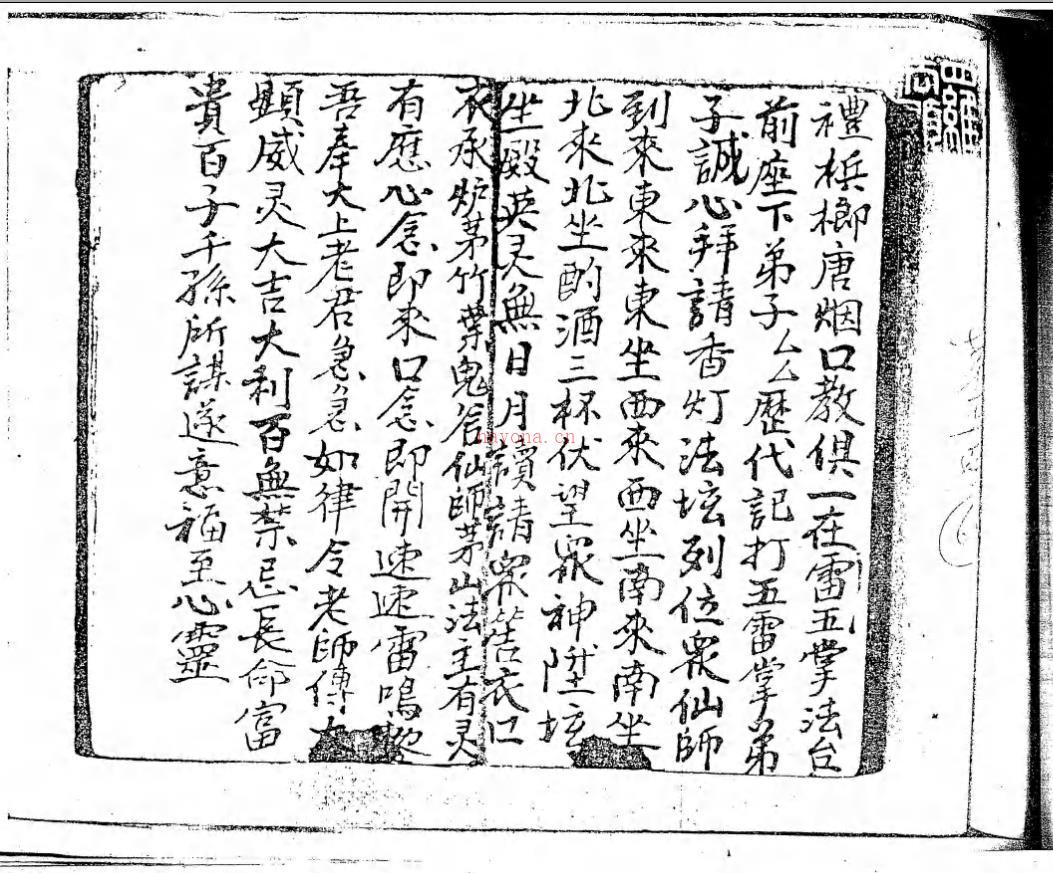 禮梹榔唐烟口教俱一在雷五掌法台
前座下弟子厶厶歷代記打五雷掌弟
子誠心拜請香灯法坛列位衆仙師
到來東來東坐西來西坐南來南坐
北來北坐酌酒三杯伏望衆神陞坛
坐殿英灵無日月讀請衆筶衣口
衣承炉茅竹葉鬼谷仙師茅山法主有灵
有應心念即來口念即開速速雷鳴
吾奉大上老君急急如律令老師傅
顯威灵大吉大利百無禁忌長命富
貴百子千孫所謀遂意福至心靈
nayona.cn